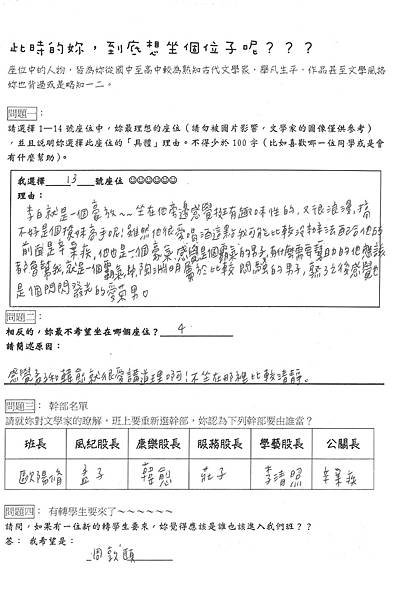 此時的妳，到底想坐個位子呢？？？
座位中的人物，皆為妳從國中至高中較為熟知古代文學家，舉凡生平、作品甚至文學風格
妳也背過或是略知一二。
問題一：
請選擇 1—14 號座位中，妳最理想的座位（請勿被圖片影響，文學家的圖像僅供參考）
，並且說明妳選擇此座位的「具體」理由。不得少於 100 字（比如喜歡哪一位同學或是會
有什麼幫助）。
我選擇 13 號座位 ☺☺☺☺☺☺
理由：
李白就是一個豪放~~坐在他旁邊感覺挺有趣味性的，又很浪漫，搞
不好是個接吻高手呢！雖然他很愛喝酒這點我可能比較沒辦法配合他的
前面是辛棄疾，他也是一個豪氣感覺是個霸氣的男子，有什麼需要幫助的他應該
都會幫我，就是一個霸氣，陶淵明屬於比較悶騷的男子，熟了後感覺也
是個閃閃發光的愛菊男。
問題二：
相反的，妳最不希望坐在哪個座位？ 4
請簡述原因：
感覺孟子和韓愈就很愛講道理啊！不坐在那裡比較清靜。
問題三： 幹部名單
請就妳對文學家的瞭解，班上要重新選幹部，妳認為下列幹部要由誰當？
班長 風紀股長 康樂股長 服務股長 學藝股長 公關長
歐陽脩 孟子 韓愈 莊子 李清照 辛棄疾
問題四： 有轉學生要來了～～～～～～
請問，如果有一位新的轉學生要來，妳覺得應該是誰也該進入我們班？？
答： 我希望是： 周敦頤